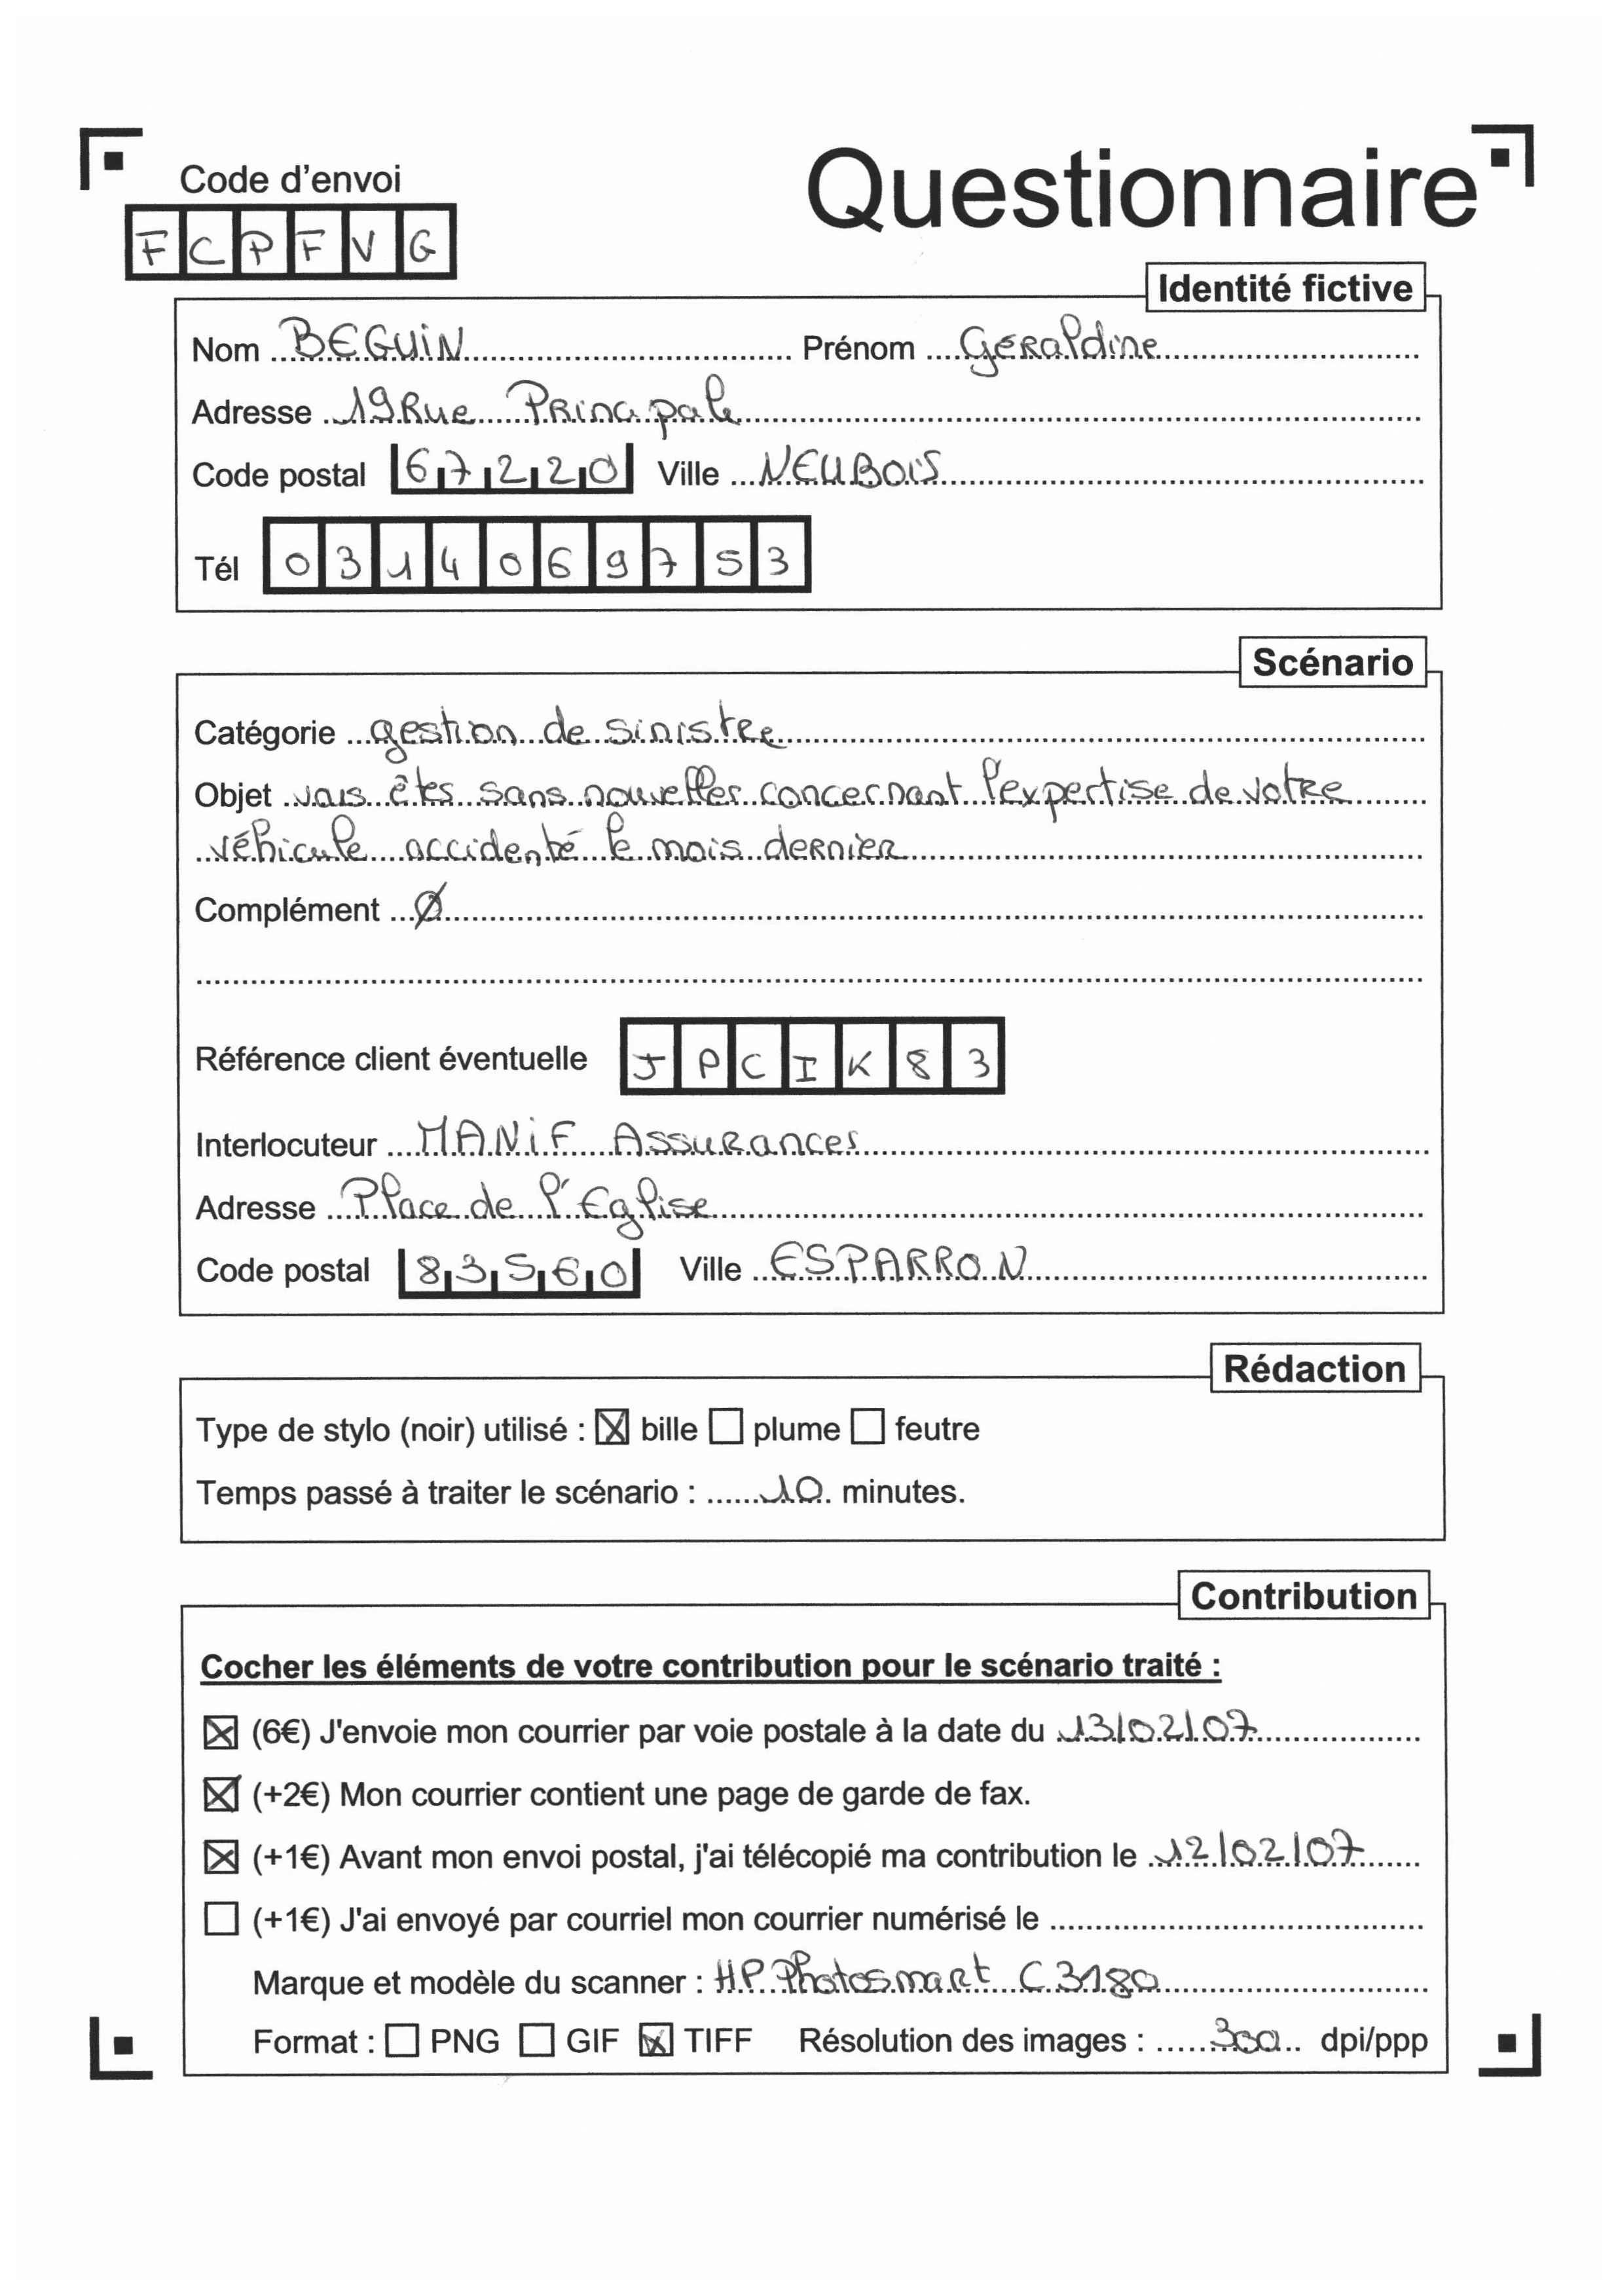 Code d'envoi
Questionnaire
FCPFVG
Identité fictive
Nom BEGUIN Prénom Géraldine
Adresse 19 Rue Principale
Code postal 67220 Ville NEUBOIS
Tél 0314069753
Scénario
Catégorie gestion de sinistre
Objet vous êtes sans nouvelles concernant l'expertise de votre
véhicule accidenté le mois dernier
Complément Ø
Référence client éventuelle JPCIK83
Interlocuteur MANIF Assurances
Adresse Place de l'Eglise
Code postal 83560 Ville ESPARRON
Rédaction
Type de stylo (noir) utilisé : ☒ bille ☐ plume ☐ feutre
Temps passé à traiter le scénario : 10 minutes.
Contribution
Cocher les éléments de votre contribution pour le scénario traité :
☒ (6€) J'envoie mon courrier par voie postale à la date du 13/02/07
☒ (+2€) Mon courrier contient une page de garde de fax.
☒ (+1€) Avant mon envoi postal, j'ai télécopié ma contribution le 12/02/07
☐ (+1€) J'ai envoyé par courriel mon courrier numérisé le
Marque et modèle du scanner : HP Photosmart C3180
Format : ☐ PNG ☐ GIF ☒ TIFF Résolution des images : 300 dpi/ppp